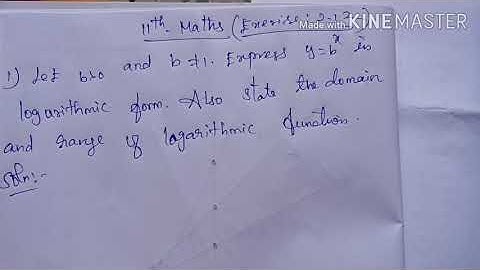 Made with KINEMASTER
11th Maths (Exercise: 2.12
1) Let b>0 and b≠1. Express y=b^x in
logarithmic form. Also state the domain
and range of logarithmic function.
Soln:-